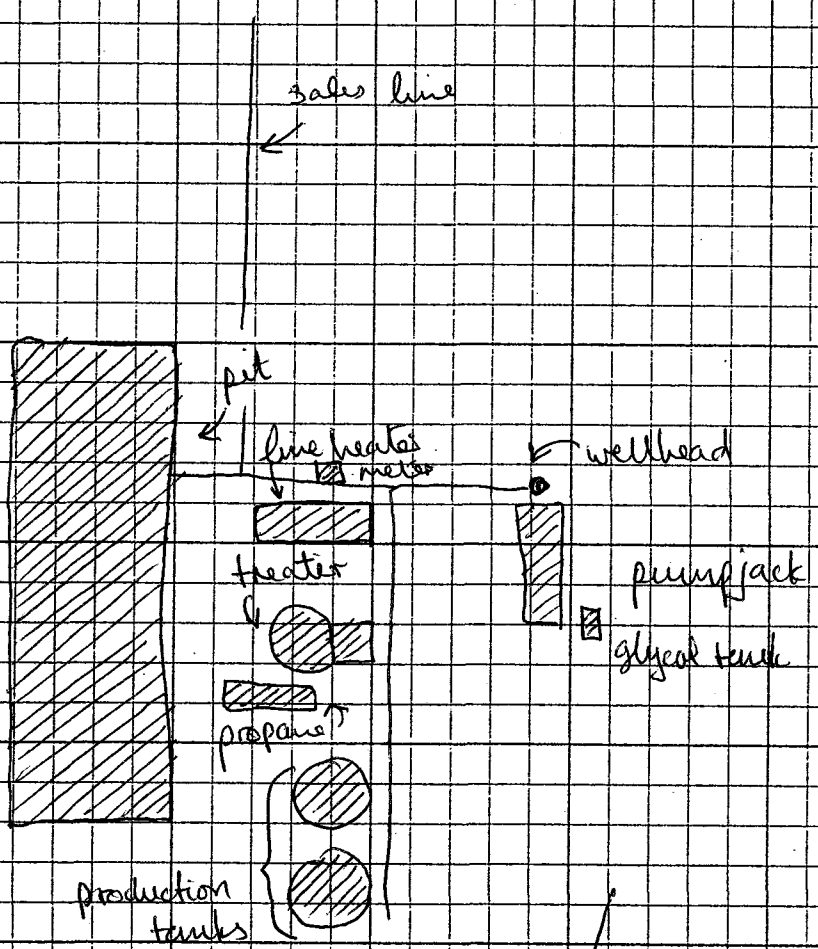 sales line
pit
line heater
meter
wellhead
treater
pumpjack
glycol tank
propane
production
tanks